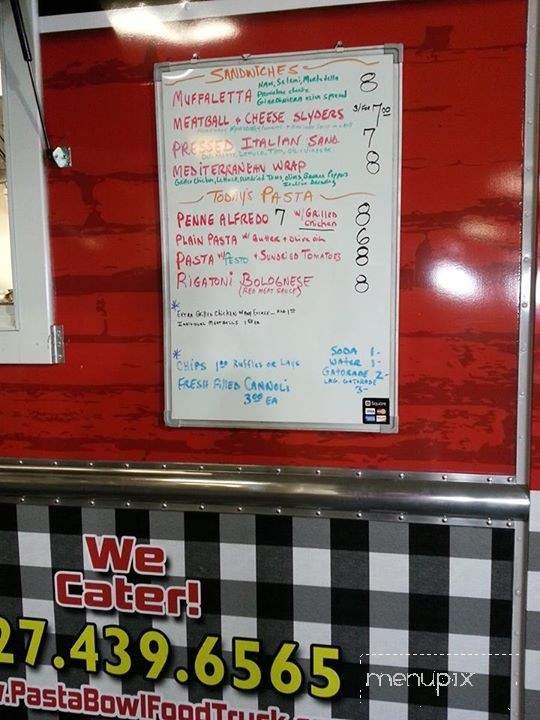 SANDWICHES
MUFFALETTA Ham, Salami, Mortadella 8
Provolone cheese
Giardiniera olive spread
MEATBALL + CHEESE SLYDERS 3/for 7.00
PRESSED ITALIAN SAND. 7
MEDITERRANEAN WRAP 8
Grilled Chicken, Lettuce, Sundried Toms, olives, Banana Peppers
Italian dressing
TODAY'S PASTA
PENNE ALFREDO 7 w/ GRILLED 8
CHICKEN
PLAIN PASTA w/ BUTTER + OLIVE OIL 6
PASTA w/ PESTO + SUNDRIED TOMATOES 8
RIGATONI BOLOGNESE 8
(RED MEAT SAUCE)
* EXTRA Grilled Chicken
INDIVIDUAL MEATBALLS
* CHIPS 1.00 Ruffles or Lays
FRESH Filled CANNOLI
3.00 EA
SODA 1-
WATER 1-
GATORADE 2-
LRG. GATORADE
3-
Square
We
Cater!
27.439.6565
w.PastaBowlFoodTruck.
menupix